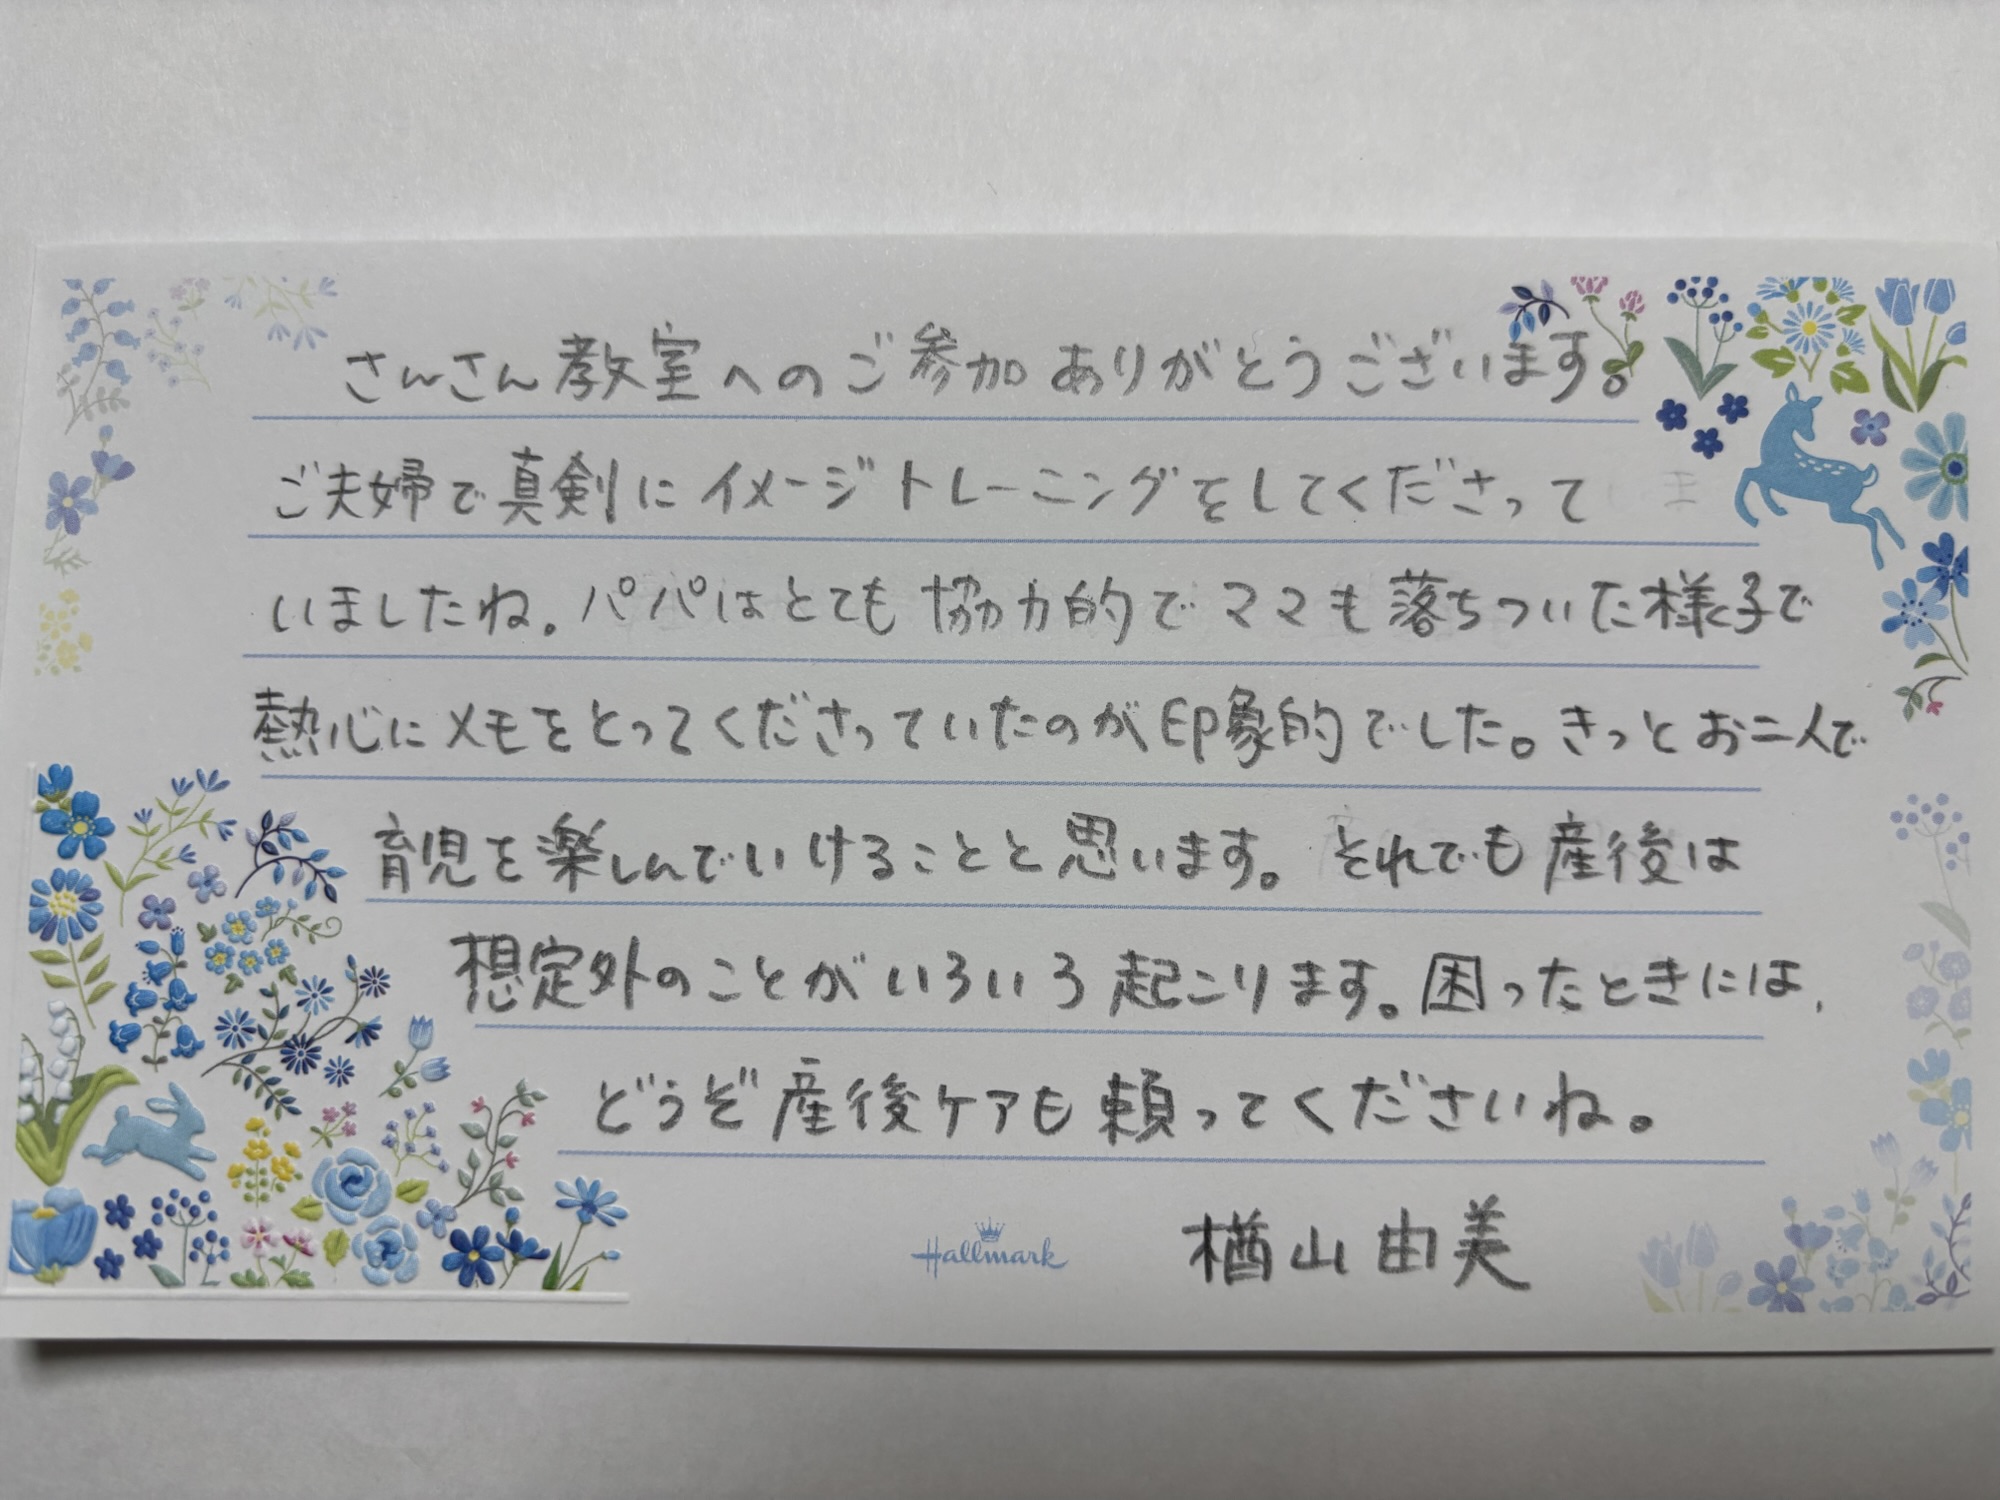 さんさん教室へのご参加ありがとうございます。
ご夫婦で真剣にイメージトレーニングをしてくださって
いましたね。パパはとても協力的でママも落ちついた様子で
熱心にメモをとってくださっていたのが印象的でした。きっとお二人で
育児を楽しんでいけることと思います。それでも産後は
想定外のことがいろいろ起こります。困ったときには、
どうぞ産後ケアも頼ってくださいね。
Hallmark
楢山由美